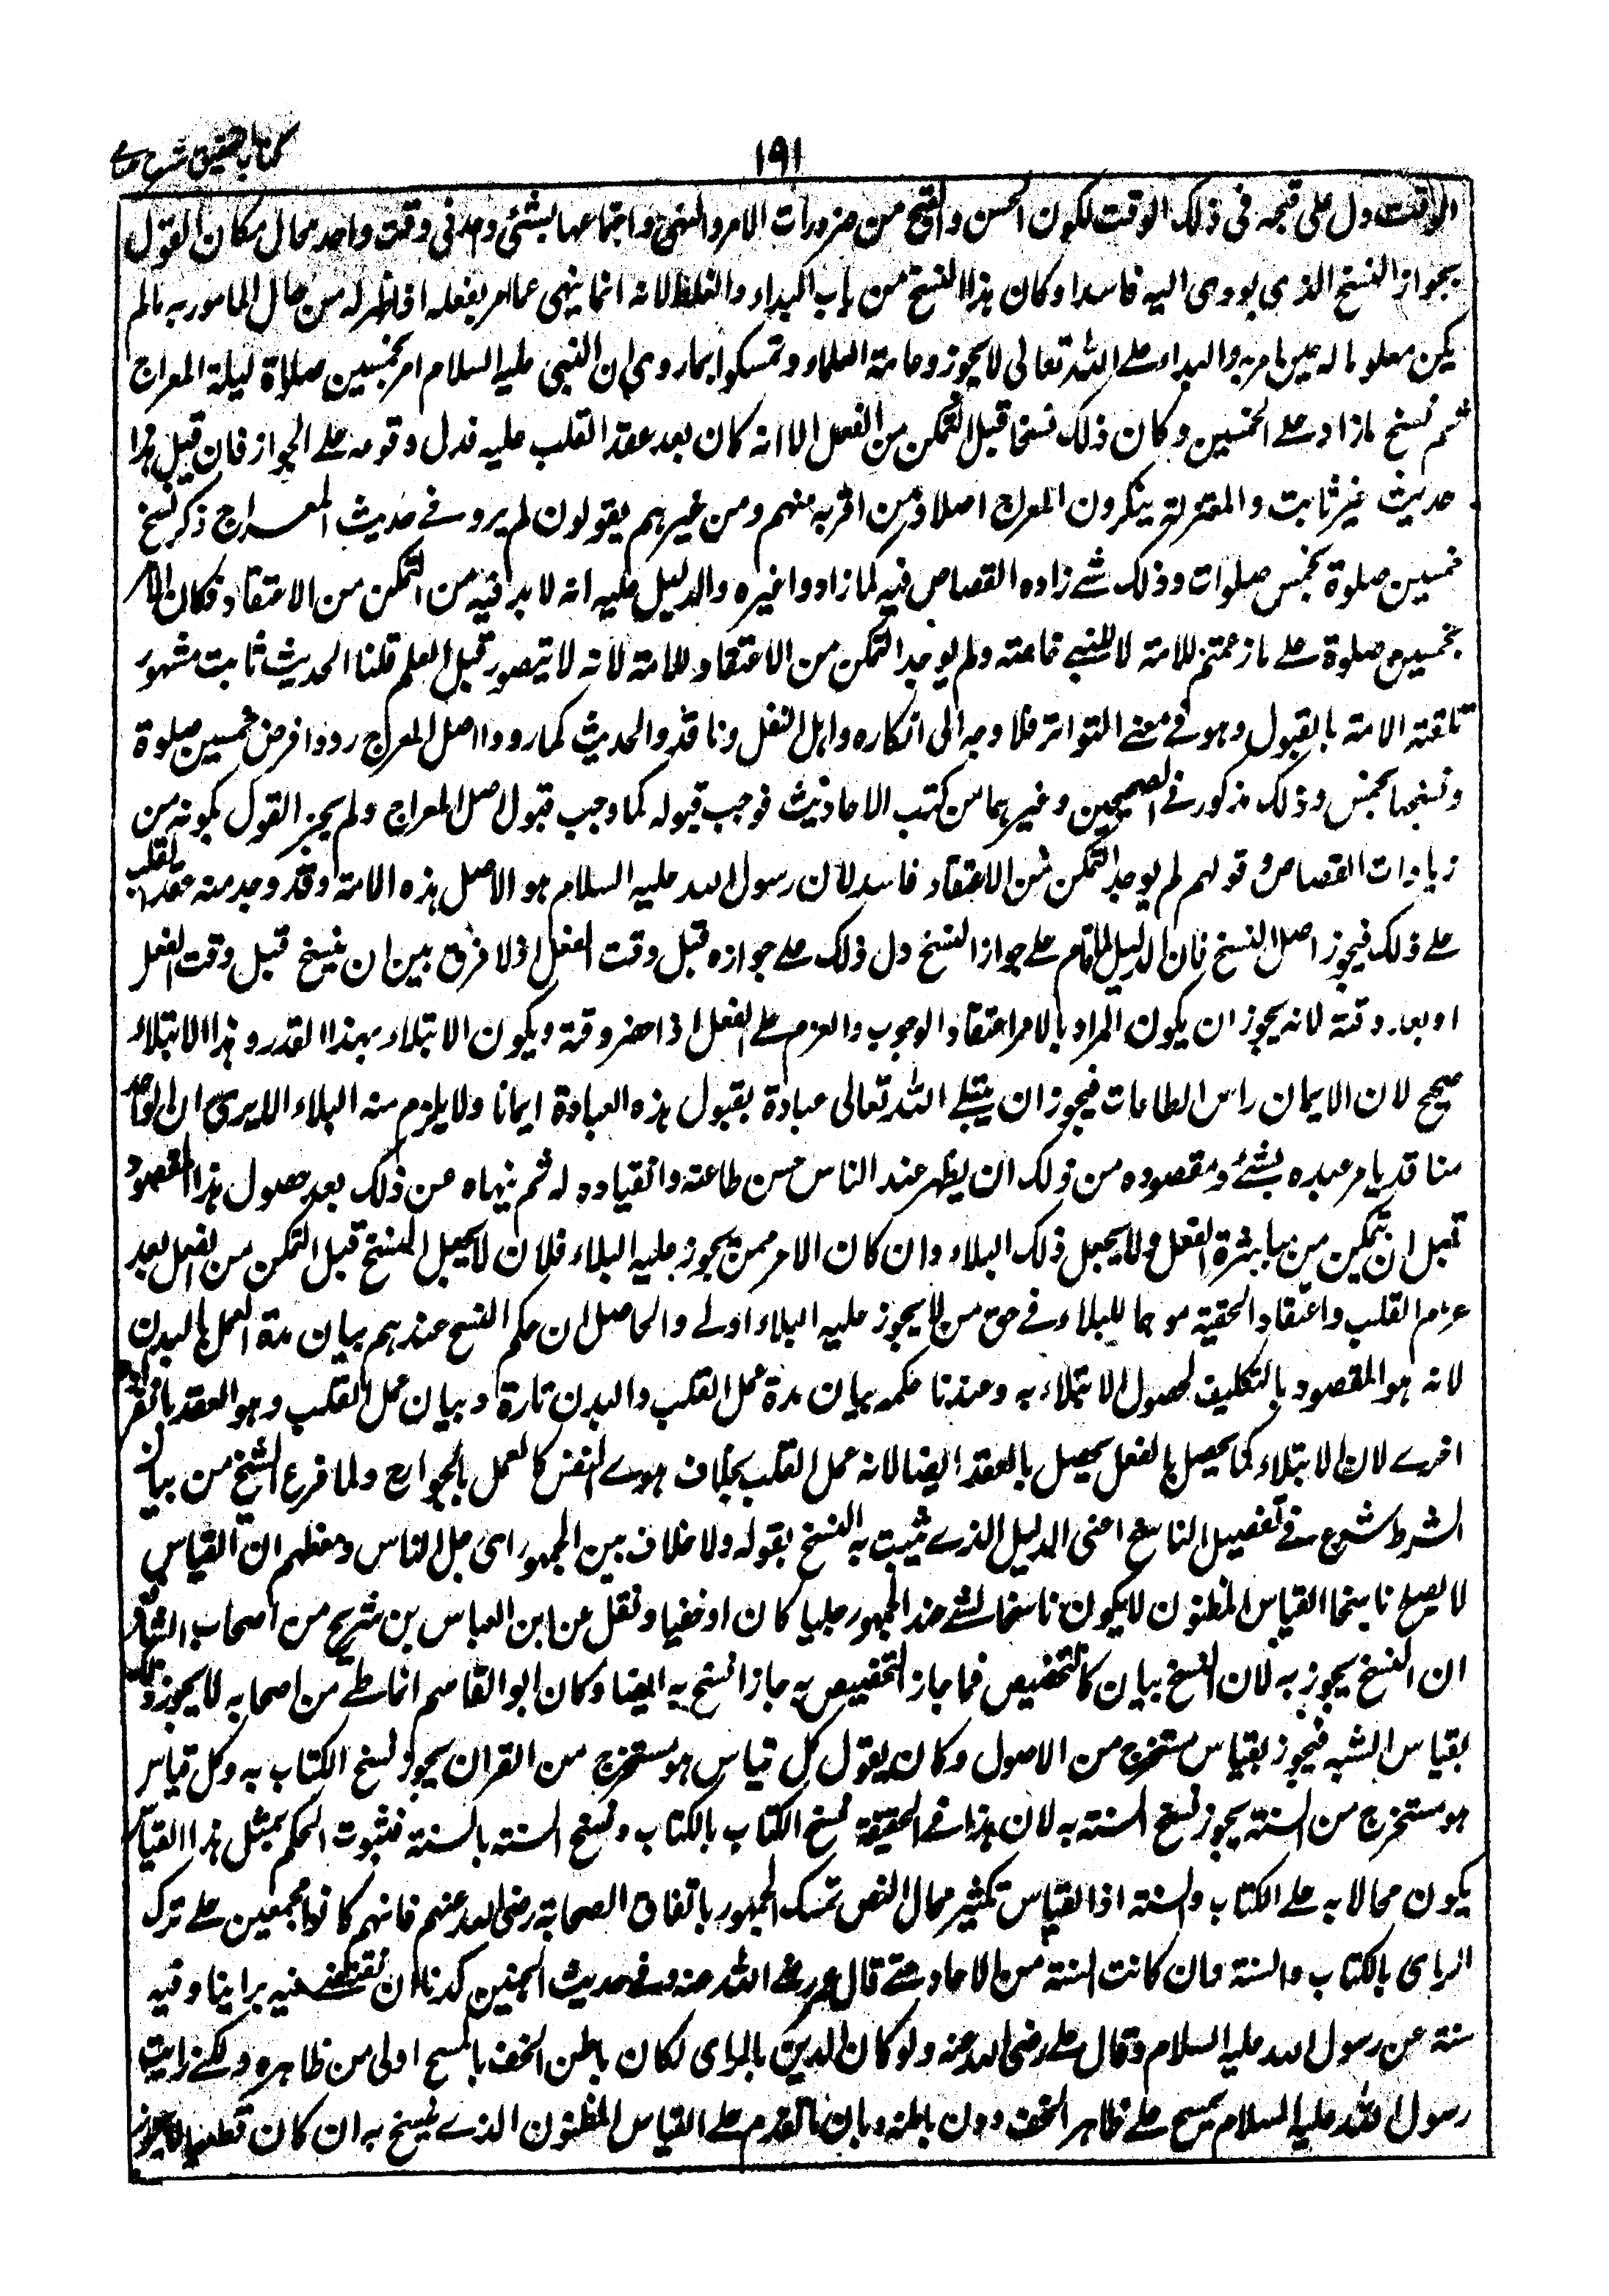 ١٩١
كتاب التحقيق شرح
الوقت دل على قبحه فى ذلك الوقت لكون الحسن والقبح من ضرورات الامر والنهى واجتماعهما بشئى واحد فى وقت واحد محال فكان القول
بجواز النسخ الذى يؤدى اليه فاسدا وكان هذا النسخ من باب البداء والغلط لانه انما ينهى عما امر بفعله اذا ظهر له من حال المامور به مالم
يكن معلوما له حين امر به والبداء على الله تعالى لا يجوز وعامة العلماء وتمسكوا بما روى ان النبى عليه السلام امر بخمسين صلاة ليلة المعراج
ثم نسخ مازاد على الخمسين وكان ذلك نسخا قبل التمكن من الفعل الا انه كان بعد عقد القلب عليه فدل وقوعه على الجواز فان قيل هذا
حديث غير ثابت والمعتزلة ينكرون المعراج اصلا ومن اقر به منهم ومن غيرهم يقولون لم يرو فى حديث المعراج ذكر نسخ
خمسين صلوة بخمس صلوات وذلك شئ زاده القصاص فيه كما زادوا غيره والدليل عليه انه لا بد فيه من التمكن من الاعتقاد فكان الامر
بخمسين صلوة على ما زعمتم للامة لا للنبى خاصته ولم يوجد التمكن من الاعتقاد للامة لانه لا يتصور قبل العلم قلنا الحديث ثابت مشهور
تلقته الامة بالقبول وهو فى معنى التواتر فلا وجه الى انكاره واهل النقل وناقدوا الحديث كما رووا اصل المعراج رووا فرض خمسين صلوة
ونسخها بخمس وذلك مذكور فى الصحيحين وغيرهما من كتب الاحاديث فوجب قبوله كما وجب قبول اصل المعراج ولم يجز القول بكونه من
زيادات القصاص وقولهم لم يوجد التمكن من الاعتقاد فاسد لان رسول الله عليه السلام هو الاصل لهذه الامة وقد وجد منه عقد القلب
على ذلك فيجوز اصل النسخ فان الدليل القائم على جواز النسخ دل ذلك على جوازه قبل وقت الفعل اذ لا فرق بين ان ينسخ قبل وقت الفعل
او بعد وقته لانه يجوز ان يكون المراد بالامر اعتقاد الوجوب والعزم على الفعل اذا حضر وقته ويكون الابتلاء بهذا القدر وهذا الابتلاء
صحيح لان الايمان راس الطاعات فيجوز ان يبتلى الله تعالى عباده بقبول هذه العبادة ايمانا ولا يلزم منه البداء الا يرى ان الواحد
منا قد يامر عبده بشئ ومقصوده من ذلك ان يظهر عند الناس حسن طاعته وانقياده له ثم ينهاه عن ذلك بعد حصول هذا المقصود
قبل ان يتمكن من مباشرة الفعل ولا يجعل ذلك البداء وان كان الامر ممن يجوز عليه البداء فلان لا يجعل النسخ قبل التمكن من الفعل بعد
عزم القلب واعتقاد الحقية موهما للبداء فى حق من لا يجوز عليه البداء اولى والحاصل ان حكم النسخ عندهم بيان مدة العمل بالبدن
لانه هو المقصود بالتكليف لحصول الابتلاء به وعندنا حكمه بيان مدة عمل القلب والبدن تارة وبيان عمل القلب وهو العقد بانفراده
اخرى لان الابتلاء كما يحصل بالفعل يحصل بالعقد ايضا لانه عمل القلب بخلاف هوى النفس كالعمل بالجوارح ولما فرغ الشيخ من بيان
الشرط شرع فى تفصيل الناسخ اعنى الدليل الذى يثبت به النسخ بقوله ولا خلاف بين الجمهور اى جل الناس ومعظمهم ان القياس
لا يصلح ناسخا القياس المظنون لا يكون ناسخا لشئ عند الجمهور جليا كان او خفيا ونقل عن ابن العباس بن شريح من اصحاب الشافعى
ان النسخ يجوز به لان النسخ بيان كالتخصيص فما جاز التخصيص به جاز النسخ به ايضا وكان ابو القاسم انماطى من اصحابه لا يجوز ذلك
بقياس الشبه فيجوز بقياس مستخرج من الاصول وكان يقول كل قياس هو مستخرج من القران يجوز نسخ الكتاب به وكل قياس
هو مستخرج من السنة يجوز نسخ السنة به لان هذا فى الحقيقة نسخ الكتاب بالكتاب ونسخ السنة بالسنة فثبوت الحكم بمثل هذا القياس
يكون محالا به على الكتاب والسنة اذ القياس تكثير محال النص تمسك الجمهور باتفاق الصحابة رضى الله عنهم فانهم كانوا مجمعين على ترك
الراى بالكتاب والسنة وان كانت السنة من الاحاد حتى قال عمر رضى الله عنه فى حديث الجنين كدنا ان نقضى فيه براينا وفيه
سنة عن رسول الله عليه السلام وقال على رضى الله عنه ولو كان الدين بالراى لكان باطن الخف بالمسح اولى من ظاهره ولكنى رايت
رسول الله عليه السلام يمسح على ظاهر الخف دون باطنه وبان ما تقدم على القياس المظنون الذى ينسخ به ان كان قطعيا لا يجوز